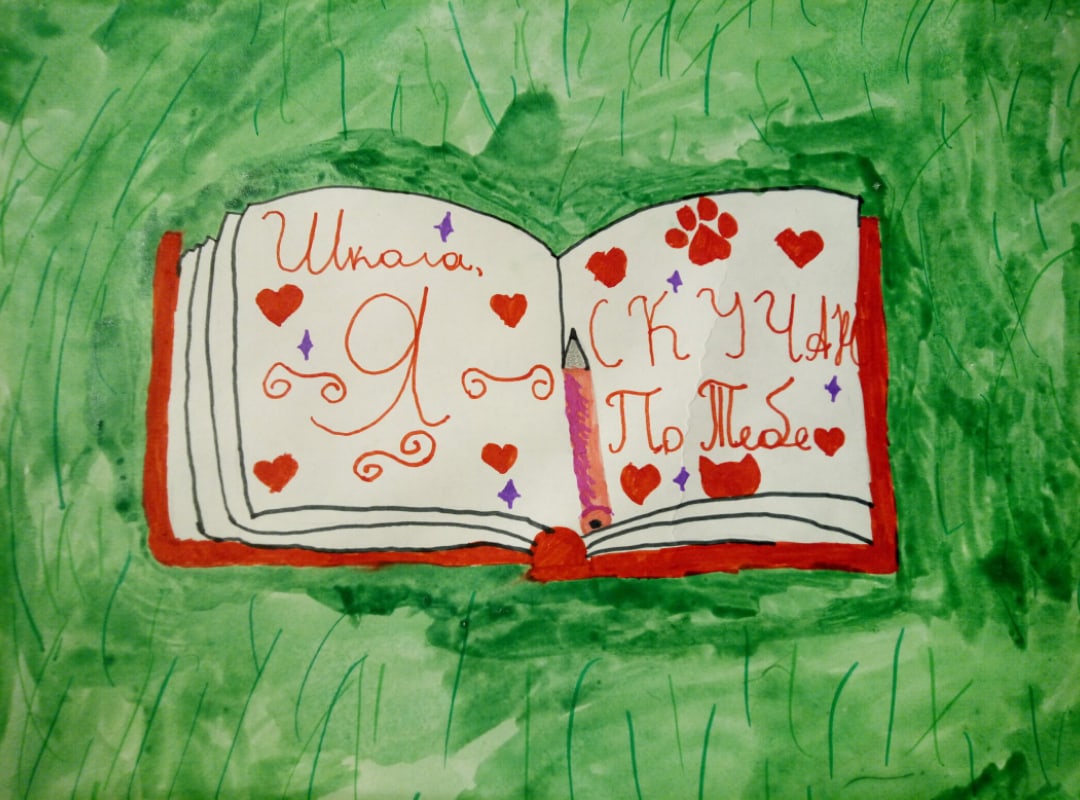 Школа,
Я
СКУЧАЮ
По Тебе